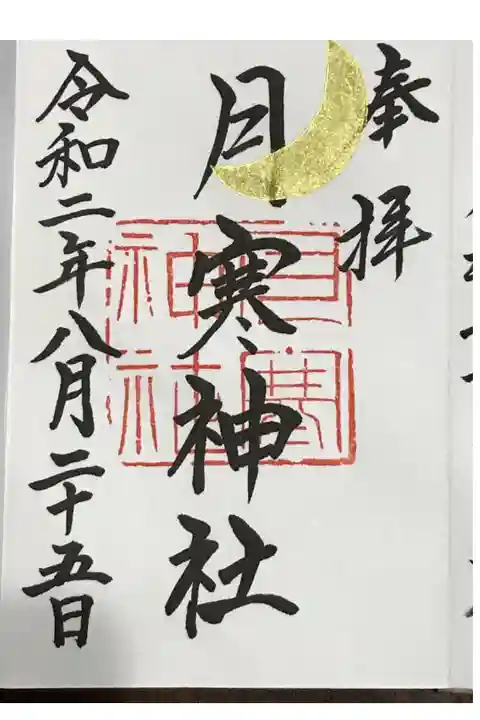 奉拝
月寒神社
月寒神社
令和二年八月二十五日